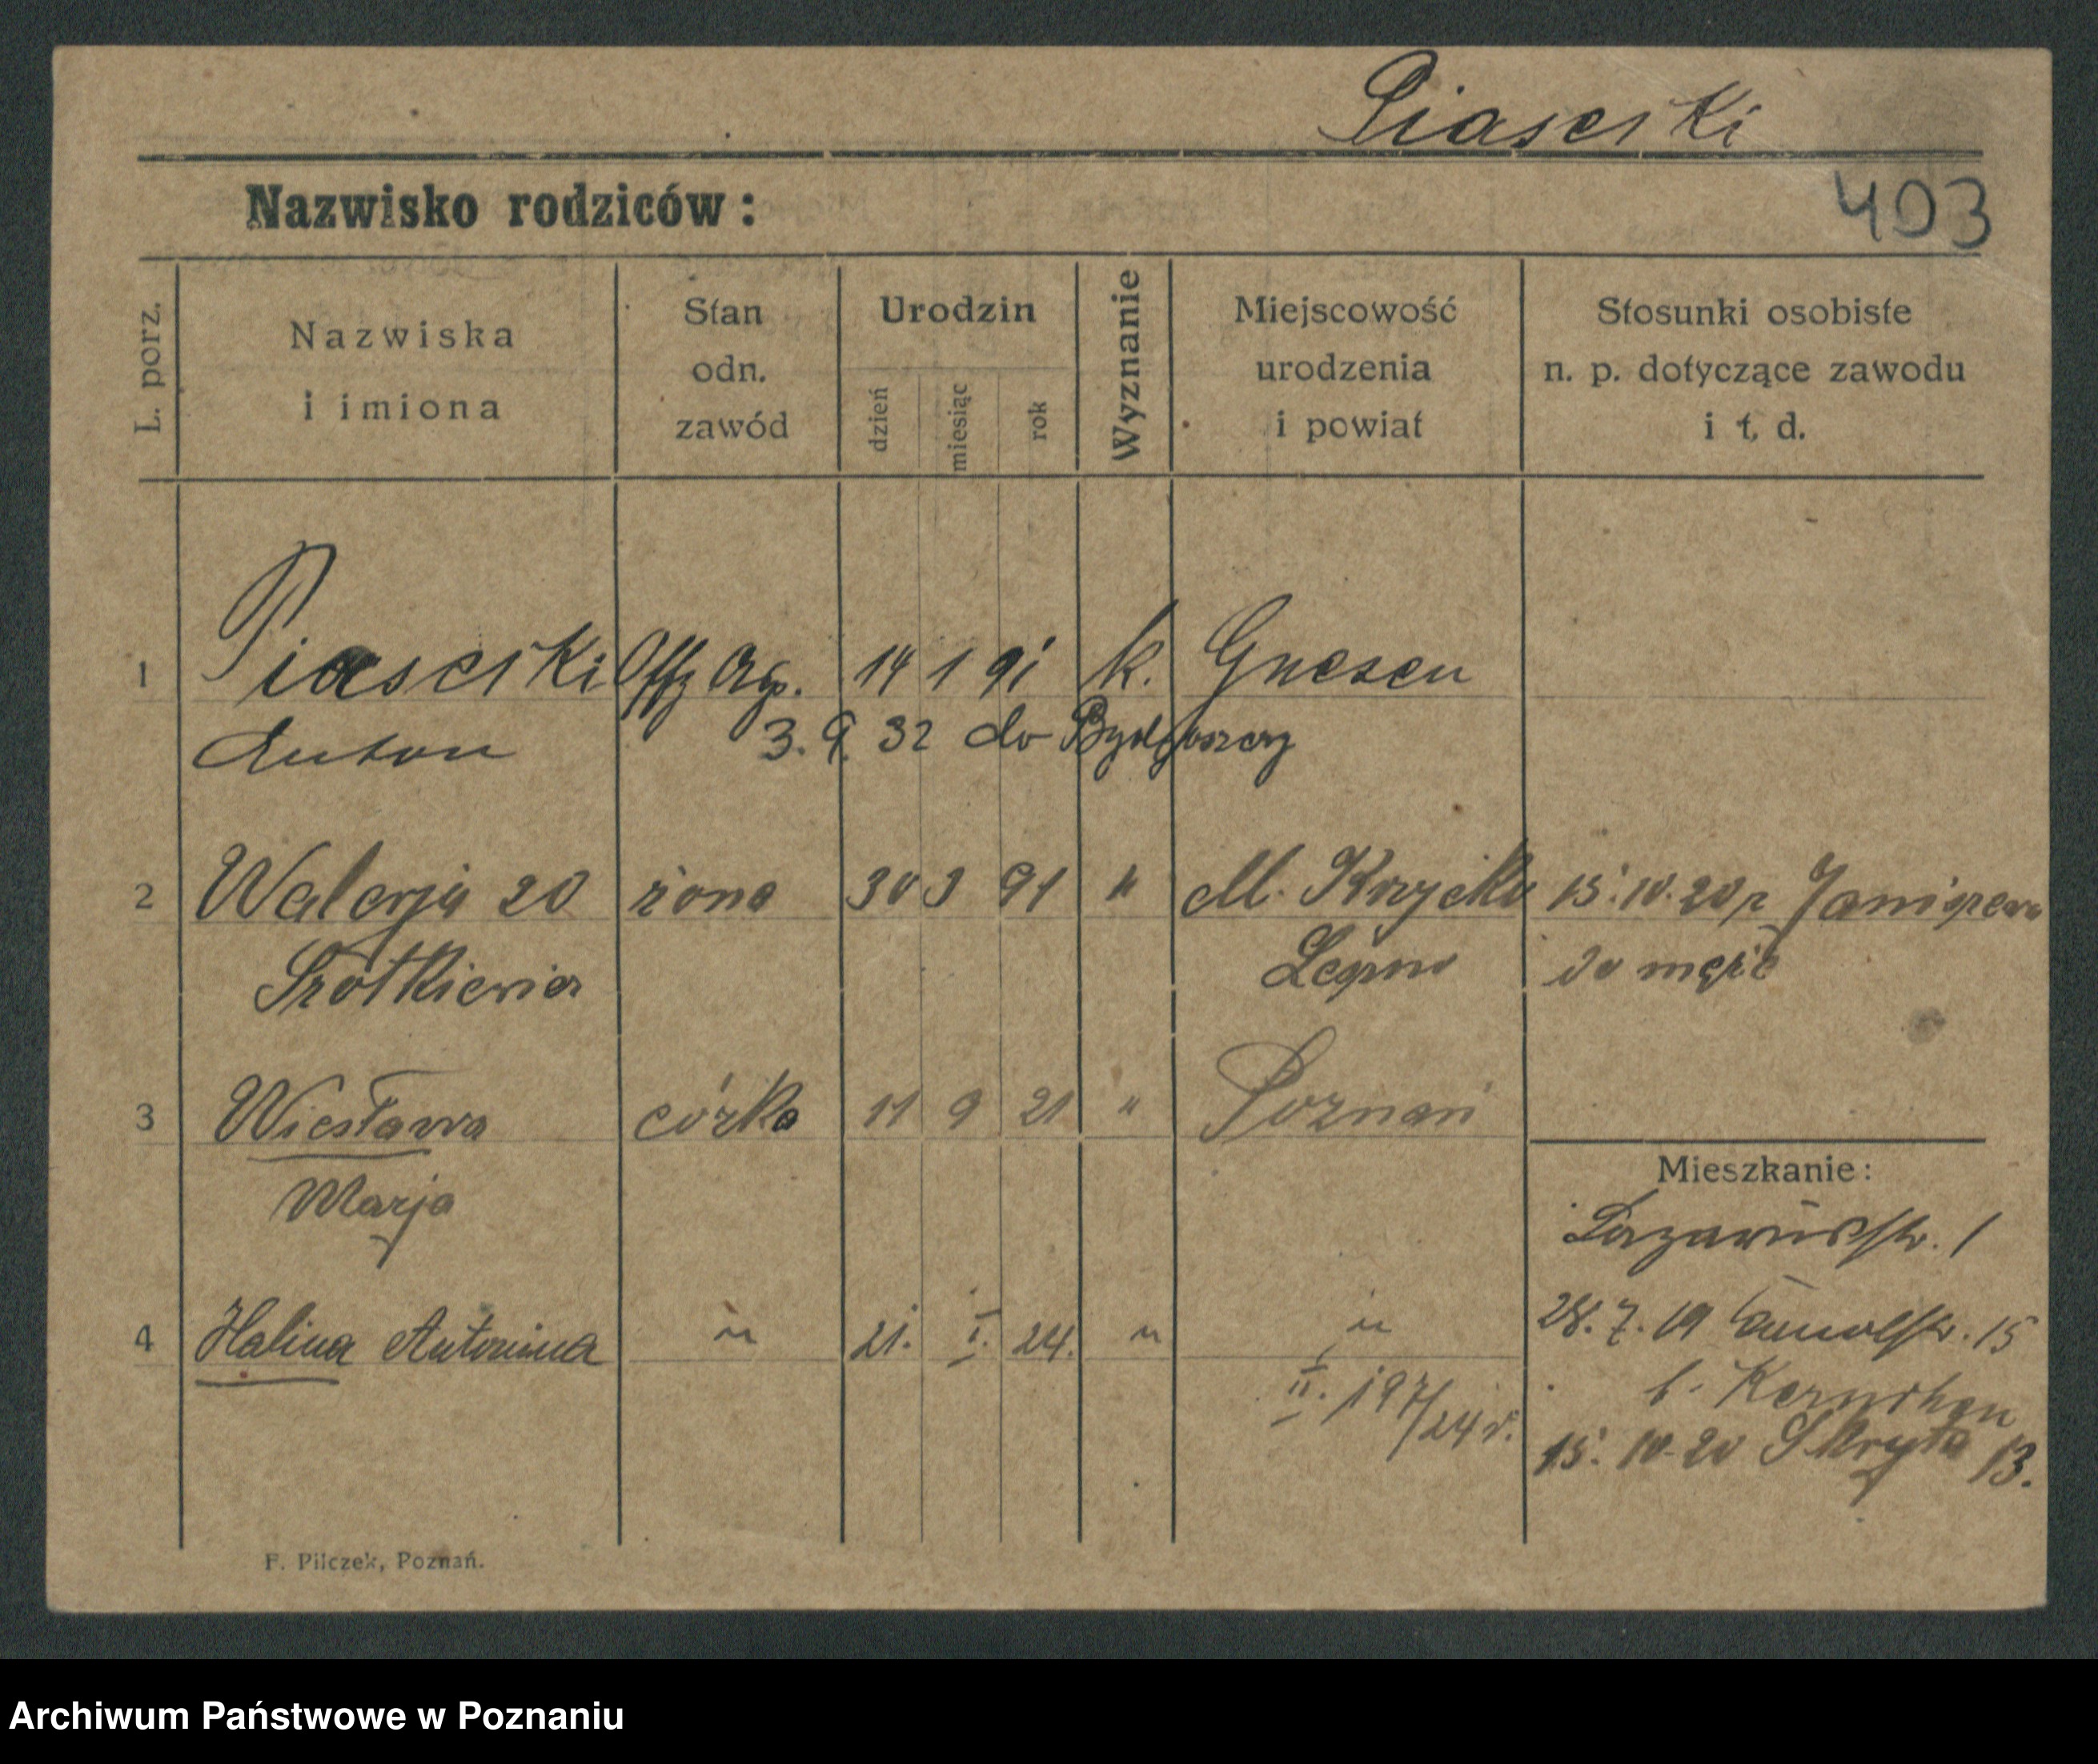 Piasecki
Nazwisko rodziców:
403
L. porz.
Nazwiska
i imiona
Stan
odn.
zawód
Urodzin
dzień
miesiąc
rok
Wyznanie
Miejscowość
urodzenia
i powiat
Stosunki osobiste
n. p. dotyczące zawodu
i t. d.
1 Piasecki 14 1 91 k. Gnesen
Anton 3. 9. 32 do Bydgoszczy
2 Walerja zd żona 30 3 91 " M. Krzycko 15. 10. 20 z
do męża
3 Wiesława córka 11 9 21 " Poznań
Marja
Mieszkanie:
Lazarusstr. 1
4 Halina Antonina " 21. I. 24. " "
28. 7. 19 15
II. 197/24 r.
b.
15. 10. 20 Skryta 13.
F. Pilczek, Poznań.
Archiwum Państwowe w Poznaniu